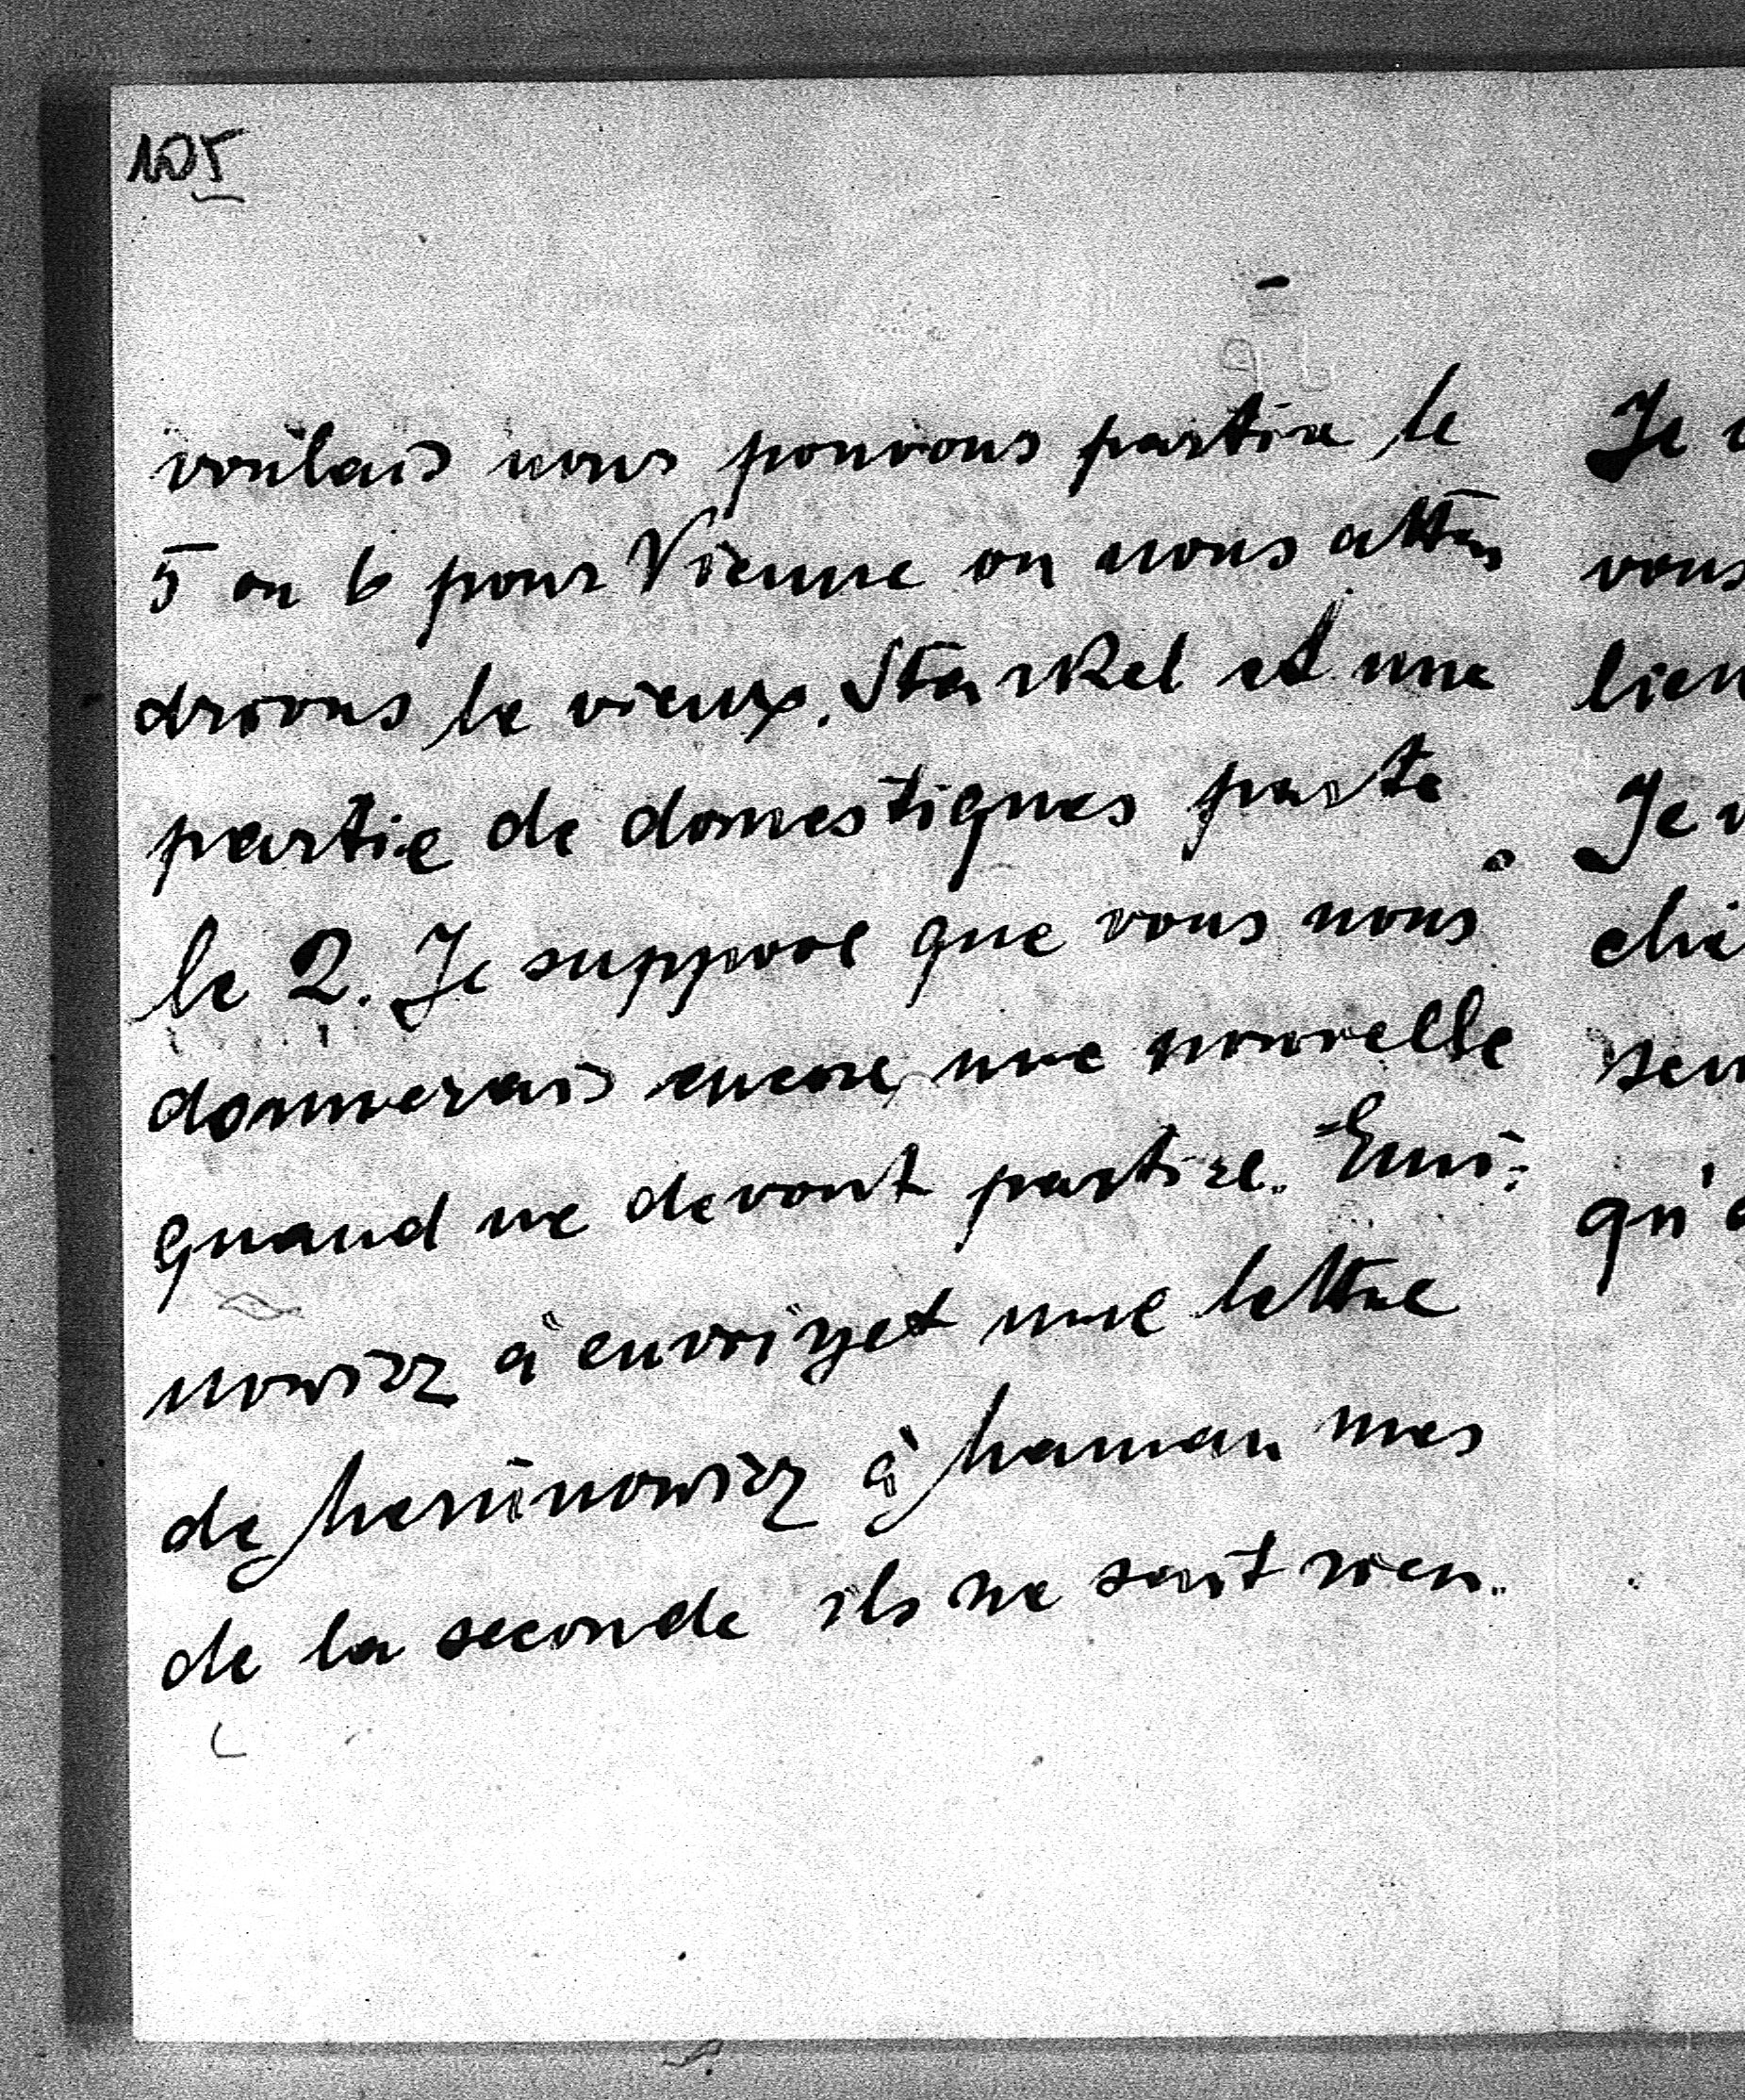 105
voulais nous pouvons partire le
5 ou 6 pour Vienne ou nous atten
drons le vieux. Starkel et une
partie de domestiques parte
le 2. Je suppose que vous nous
donnerais encore une nouvelle
quand ne devont partire. Emi=
nowicz à envoiyet une lettre
de Herminowicz à Maman mes
de la seconde ils ne sait rien.
Je
vous
lien
Je
chè
sen
qu'